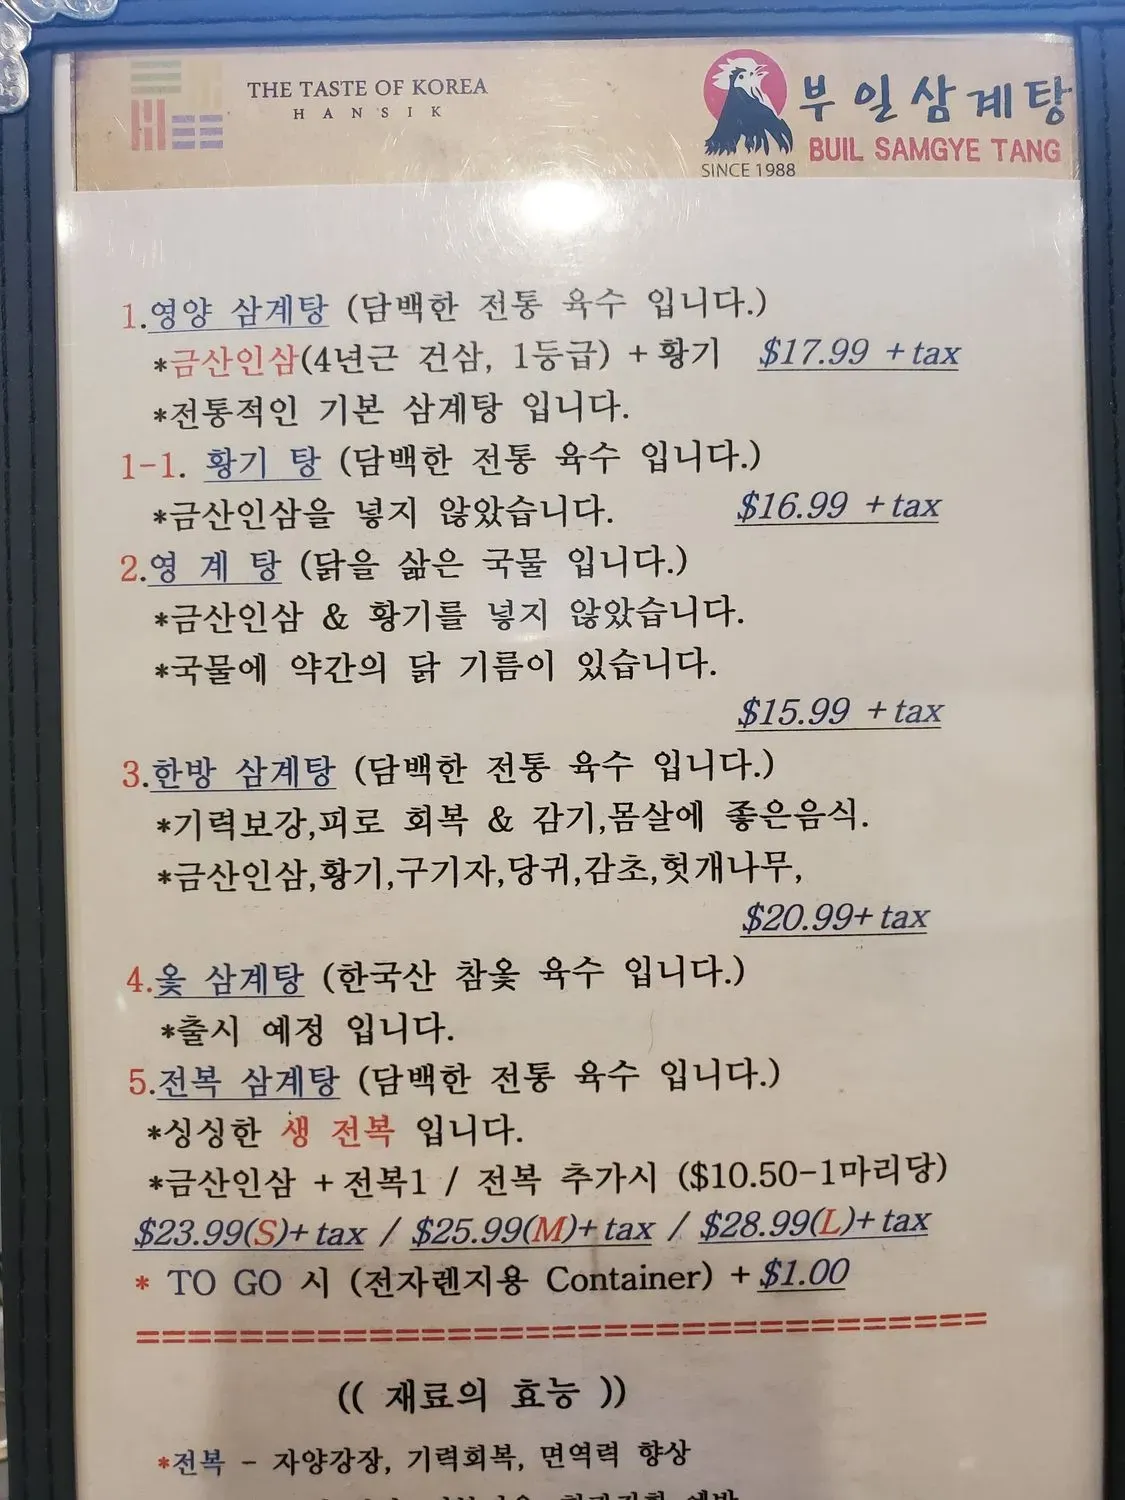 THE TASTE OF KOREA
HANSIK
부일삼계탕
BUIL SAMGYE TANG
SINCE 1988
1.영양 삼계탕 (담백한 전통 육수 입니다.)
*금산인삼(4년근 건삼, 1등급) + 황기 $17.99 + tax
*전통적인 기본 삼계탕 입니다.
1-1. 황기 탕 (담백한 전통 육수 입니다.)
*금산인삼을 넣지 않았습니다. $16.99 + tax
2.영 계 탕 (닭을 삶은 국물 입니다.)
*금산인삼 & 황기를 넣지 않았습니다.
*국물에 약간의 닭 기름이 있습니다.
$15.99 + tax
3.한방 삼계탕 (담백한 전통 육수 입니다.)
*기력보강,피로 회복 & 감기,몸살에 좋은음식.
*금산인삼,황기,구기자,당귀,감초,헛개나무,
$20.99+ tax
4.옻 삼계탕 (한국산 참옻 육수 입니다.)
*출시 예정 입니다.
5.전복 삼계탕 (담백한 전통 육수 입니다.)
*싱싱한 생 전복 입니다.
*금산인삼 + 전복1 / 전복 추가시 ($10.50-1마리당)
$23.99(S)+ tax / $25.99(M)+ tax / $28.99(L)+ tax
* TO GO 시 (전자렌지용 Container) + $1.00
================================
(( 재료의 효능 ))
*전복 - 자양강장, 기력회복, 면역력 향상